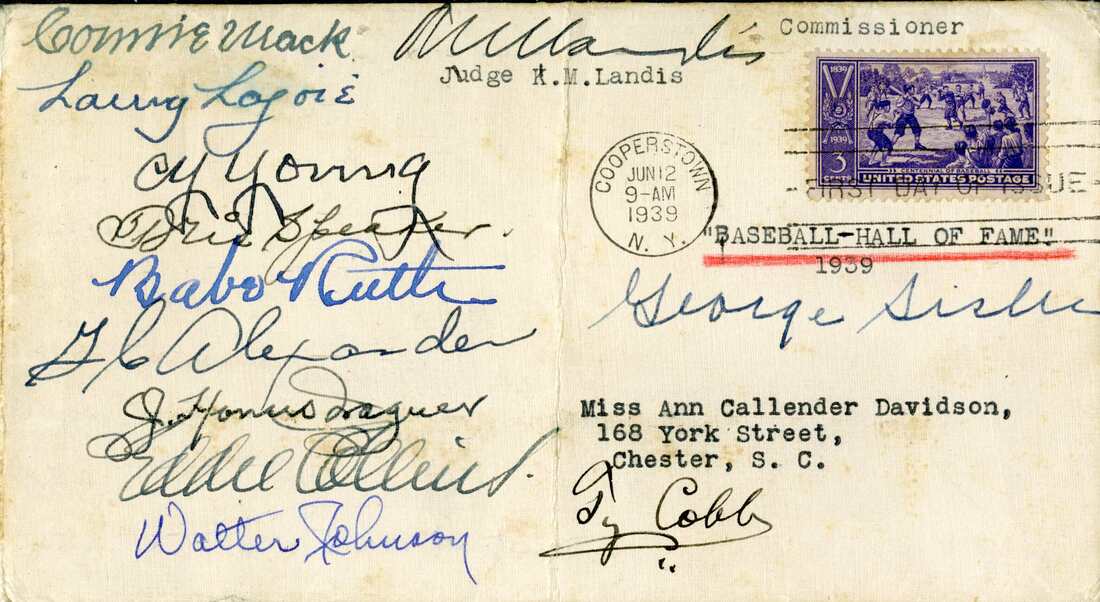 Connie Mack
Larry Lajoie
Cy Young
Tris Speaker.
Babe Ruth
G C Alexander
J. Honus Wagner
Eddie Collins.
Walter Johnson
KMLandis
Judge K.M.Landis
Commissioner
1839
1939
3
CENTS
CENTENNIAL OF BASEBALL
UNITED STATES POSTAGE
COOPERSTOWN
JUN 12
9-AM
1939
N. Y.
FIRST DAY OF ISSUE
"BASEBALL-HALL OF FAME"
1939
George Sisler
Miss Ann Callender Davidson,
168 York Street,
Chester, S. C.
Ty Cobb